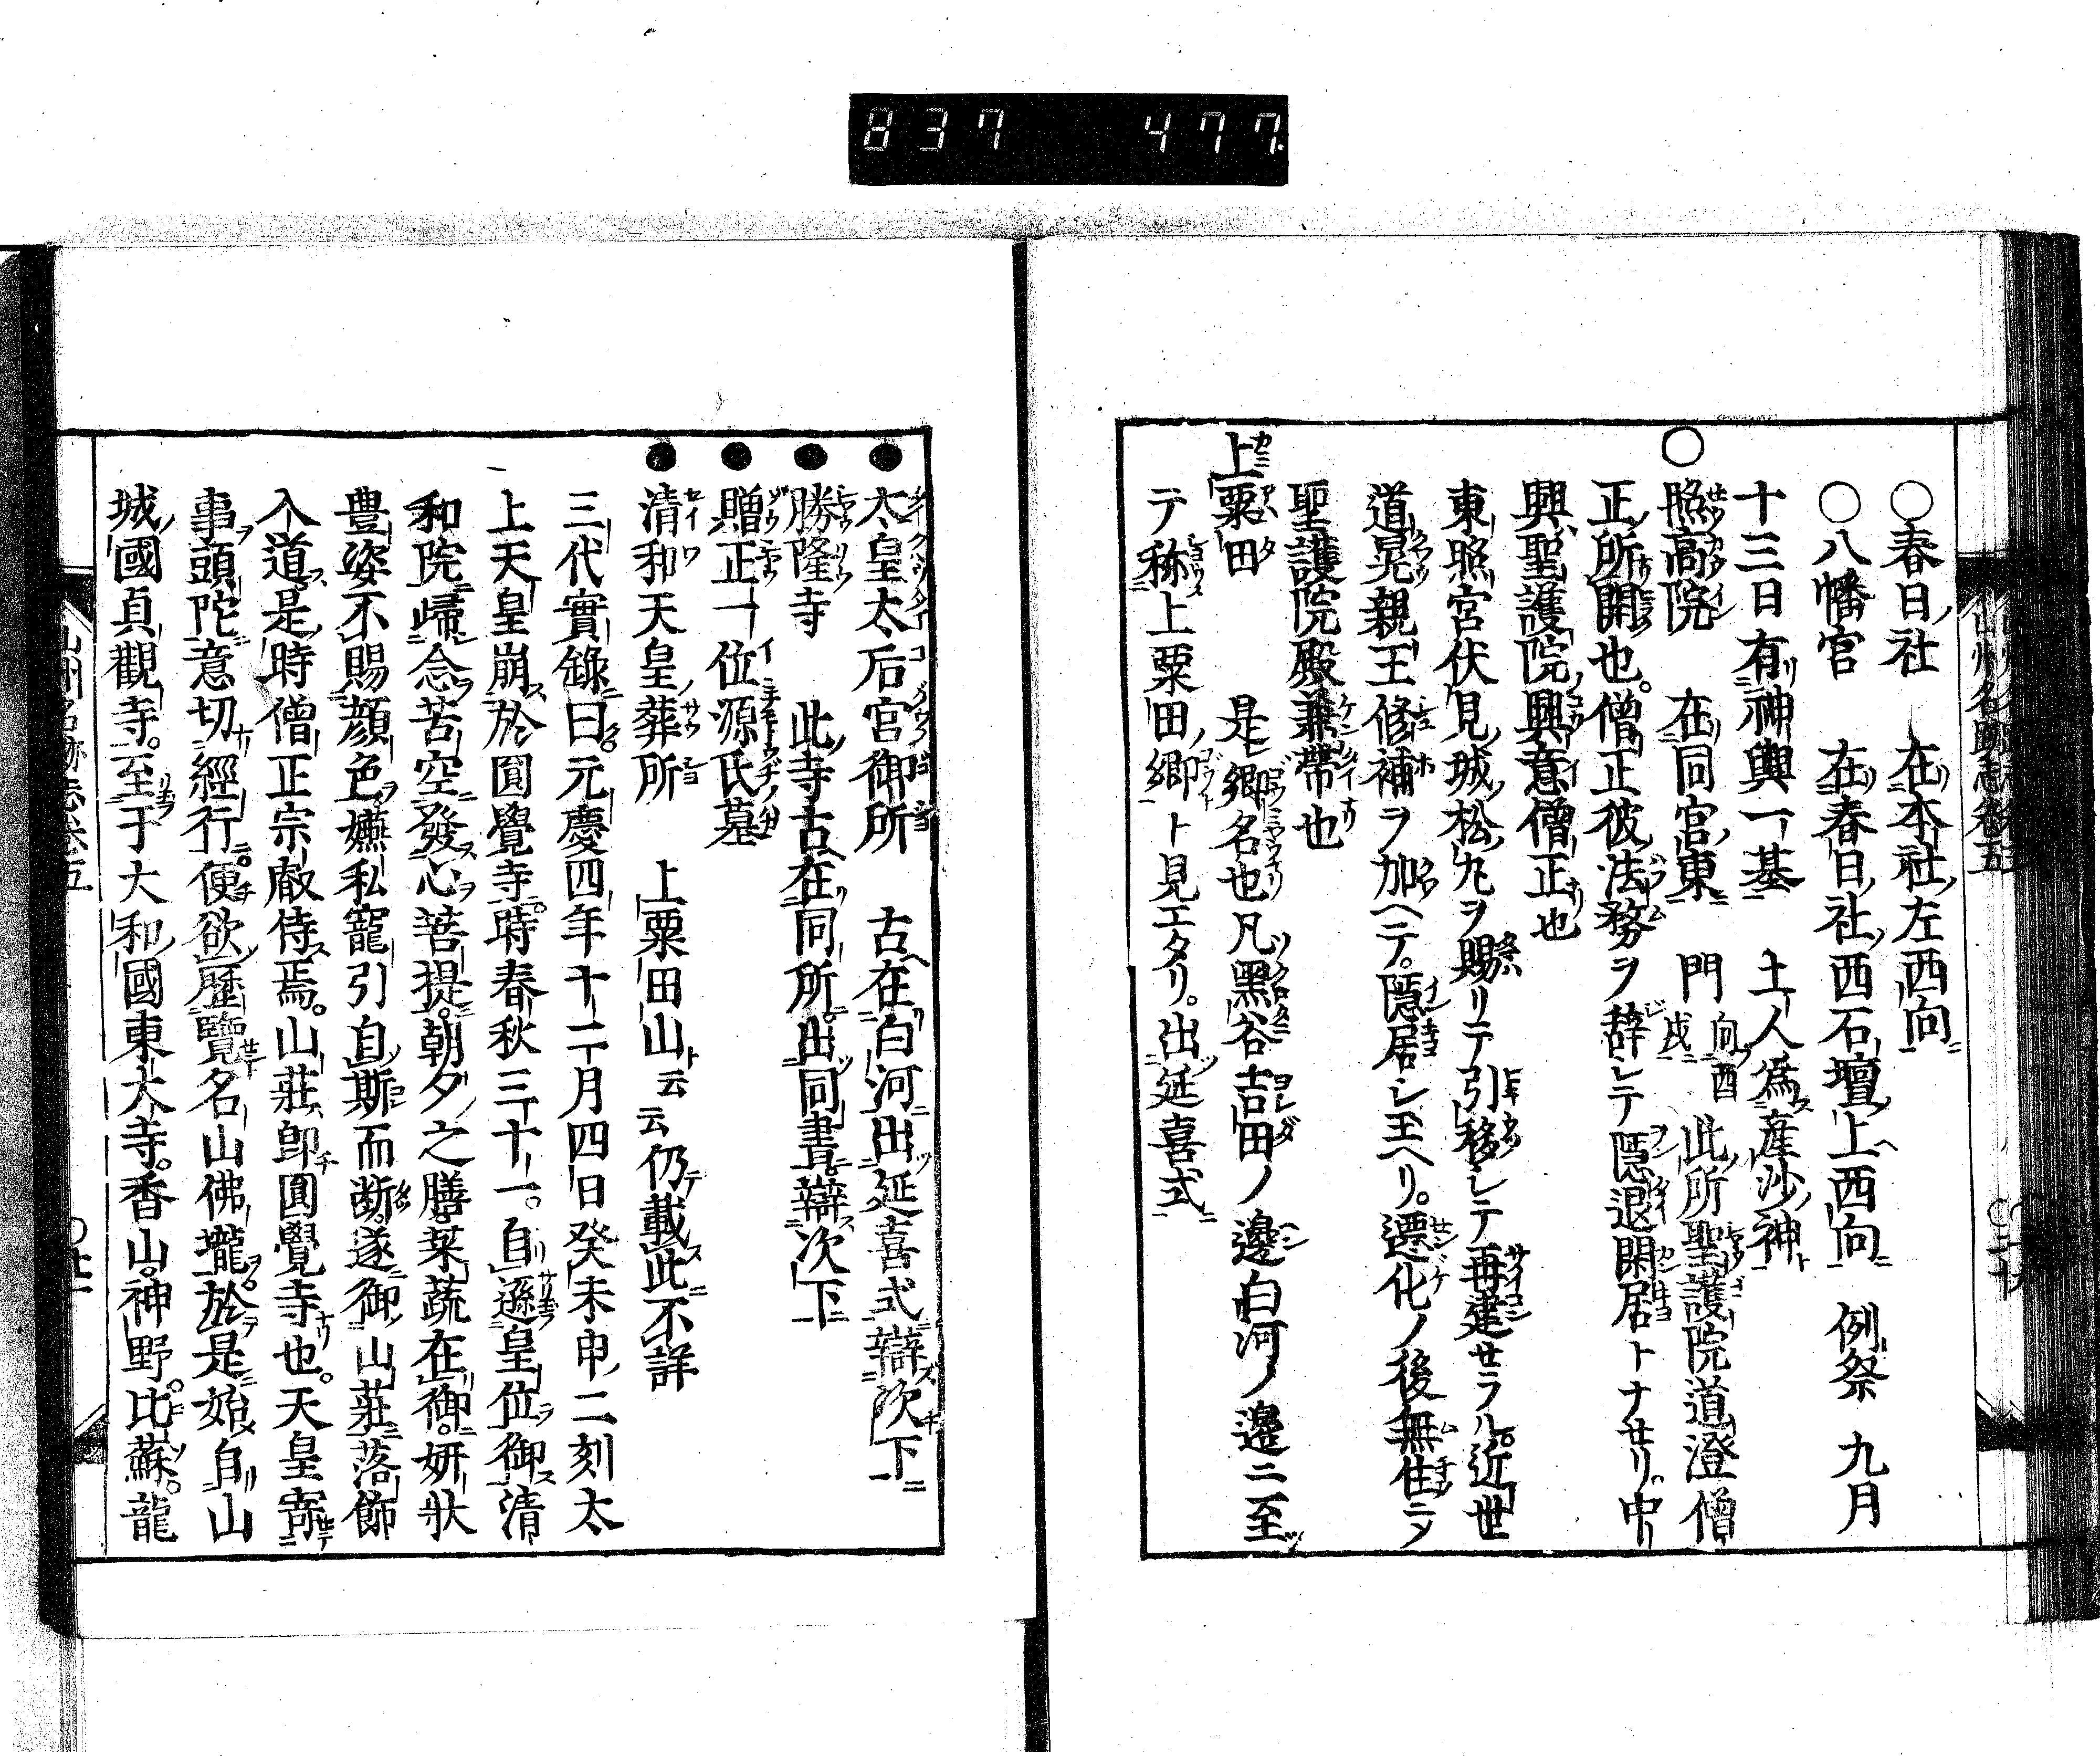 837 477
○春日社 在本社左西向
○八幡宮 在春日社西石壇上西向 例祭 九月
十三日有神輿一基 土人爲產沙神
○照高院 在同宮東 門向酉戌 此所聖護院道澄僧
正所開也。僧正彼法務ヲ辞シテ隱退閑居トナセリ。中
興聖護院興意僧正也
東照宮伏見城松丸ヲ賜リテ引移シテ再建セラル。近世
道晃親王修補ヲ加ヘテ。隱居シ玉ヘリ。遷化ノ後無住ニ〆
聖護院殿兼帶也
上粟田 是郷名也凡黑谷吉田ノ邊白河ノ邊ニ至
テ称上粟田郷ト見エタリ。出延喜式
●太皇太后宮御所 古在白河出延喜式辯次下
●勝隆寺 此寺古在同所。出同書。辯次下
●贈正一位源氏墓
●清和天皇葬所 上粟田山ト云云仍載此不詳
三代實錄曰。元慶四年十二月四日癸未申二刻太
上天皇崩於圓覺寺。時春秋三十一。自遜皇位御清
和院歸念苦空發心菩提。朝夕之膳。菜蔬在御。妍狀
豊姿不賜顔色。嬿私寵引自斯而断。遂御山莊落飾
入道。是時僧正宗叡侍焉。山莊卽圓覺寺也。天皇寄
事頭陀意切經行。便欲歷覽名山佛壠。於是始自山
城國貞觀寺。至于大和國東大寺。香山。神野。比蘇。龍